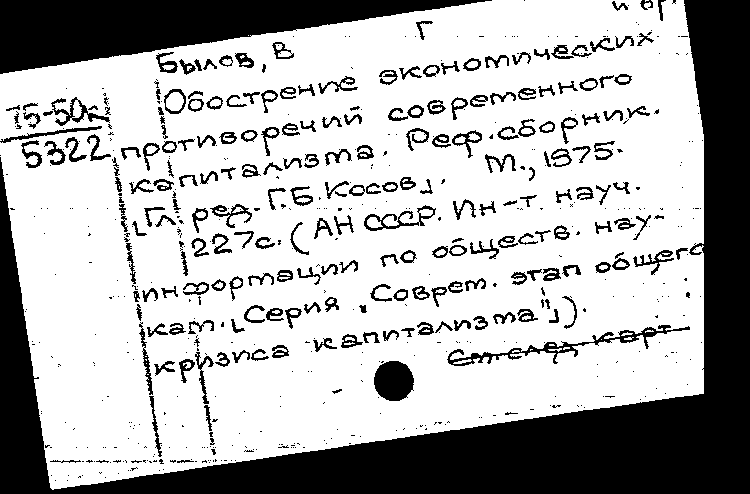 и др.
Былов, В Г
75-50к
5322
Обострение экономических
противоречий современного
капитализма. Реф. сборник.
[Гл. ред. Г.Б. Косов]. М., 1975.
227с. (АН СССР. Ин-т науч.
информации по обществ. нау-
кам. [Серия „Соврем. этап общего
кризиса капитализма"]).
См след карт